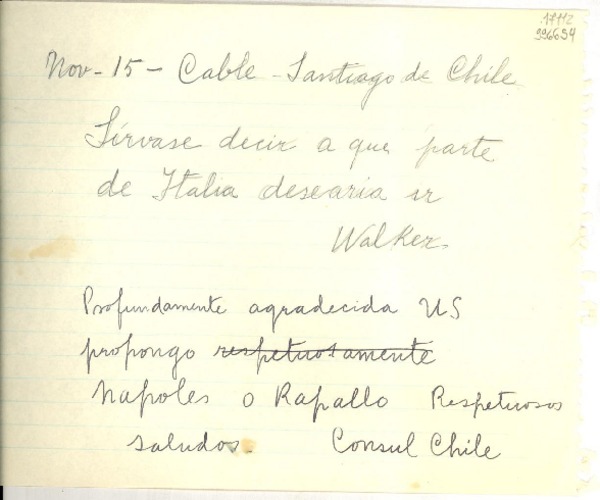 17112
996694
Nov-15- Cable - Santiago de Chile
Sírvase decir a que parte
de Italia desearia ir
Walker.
Profundamente agradecida US
propongo respetuosamente
Napoles o Rapallo Respetuosos
saludos. Consul Chile